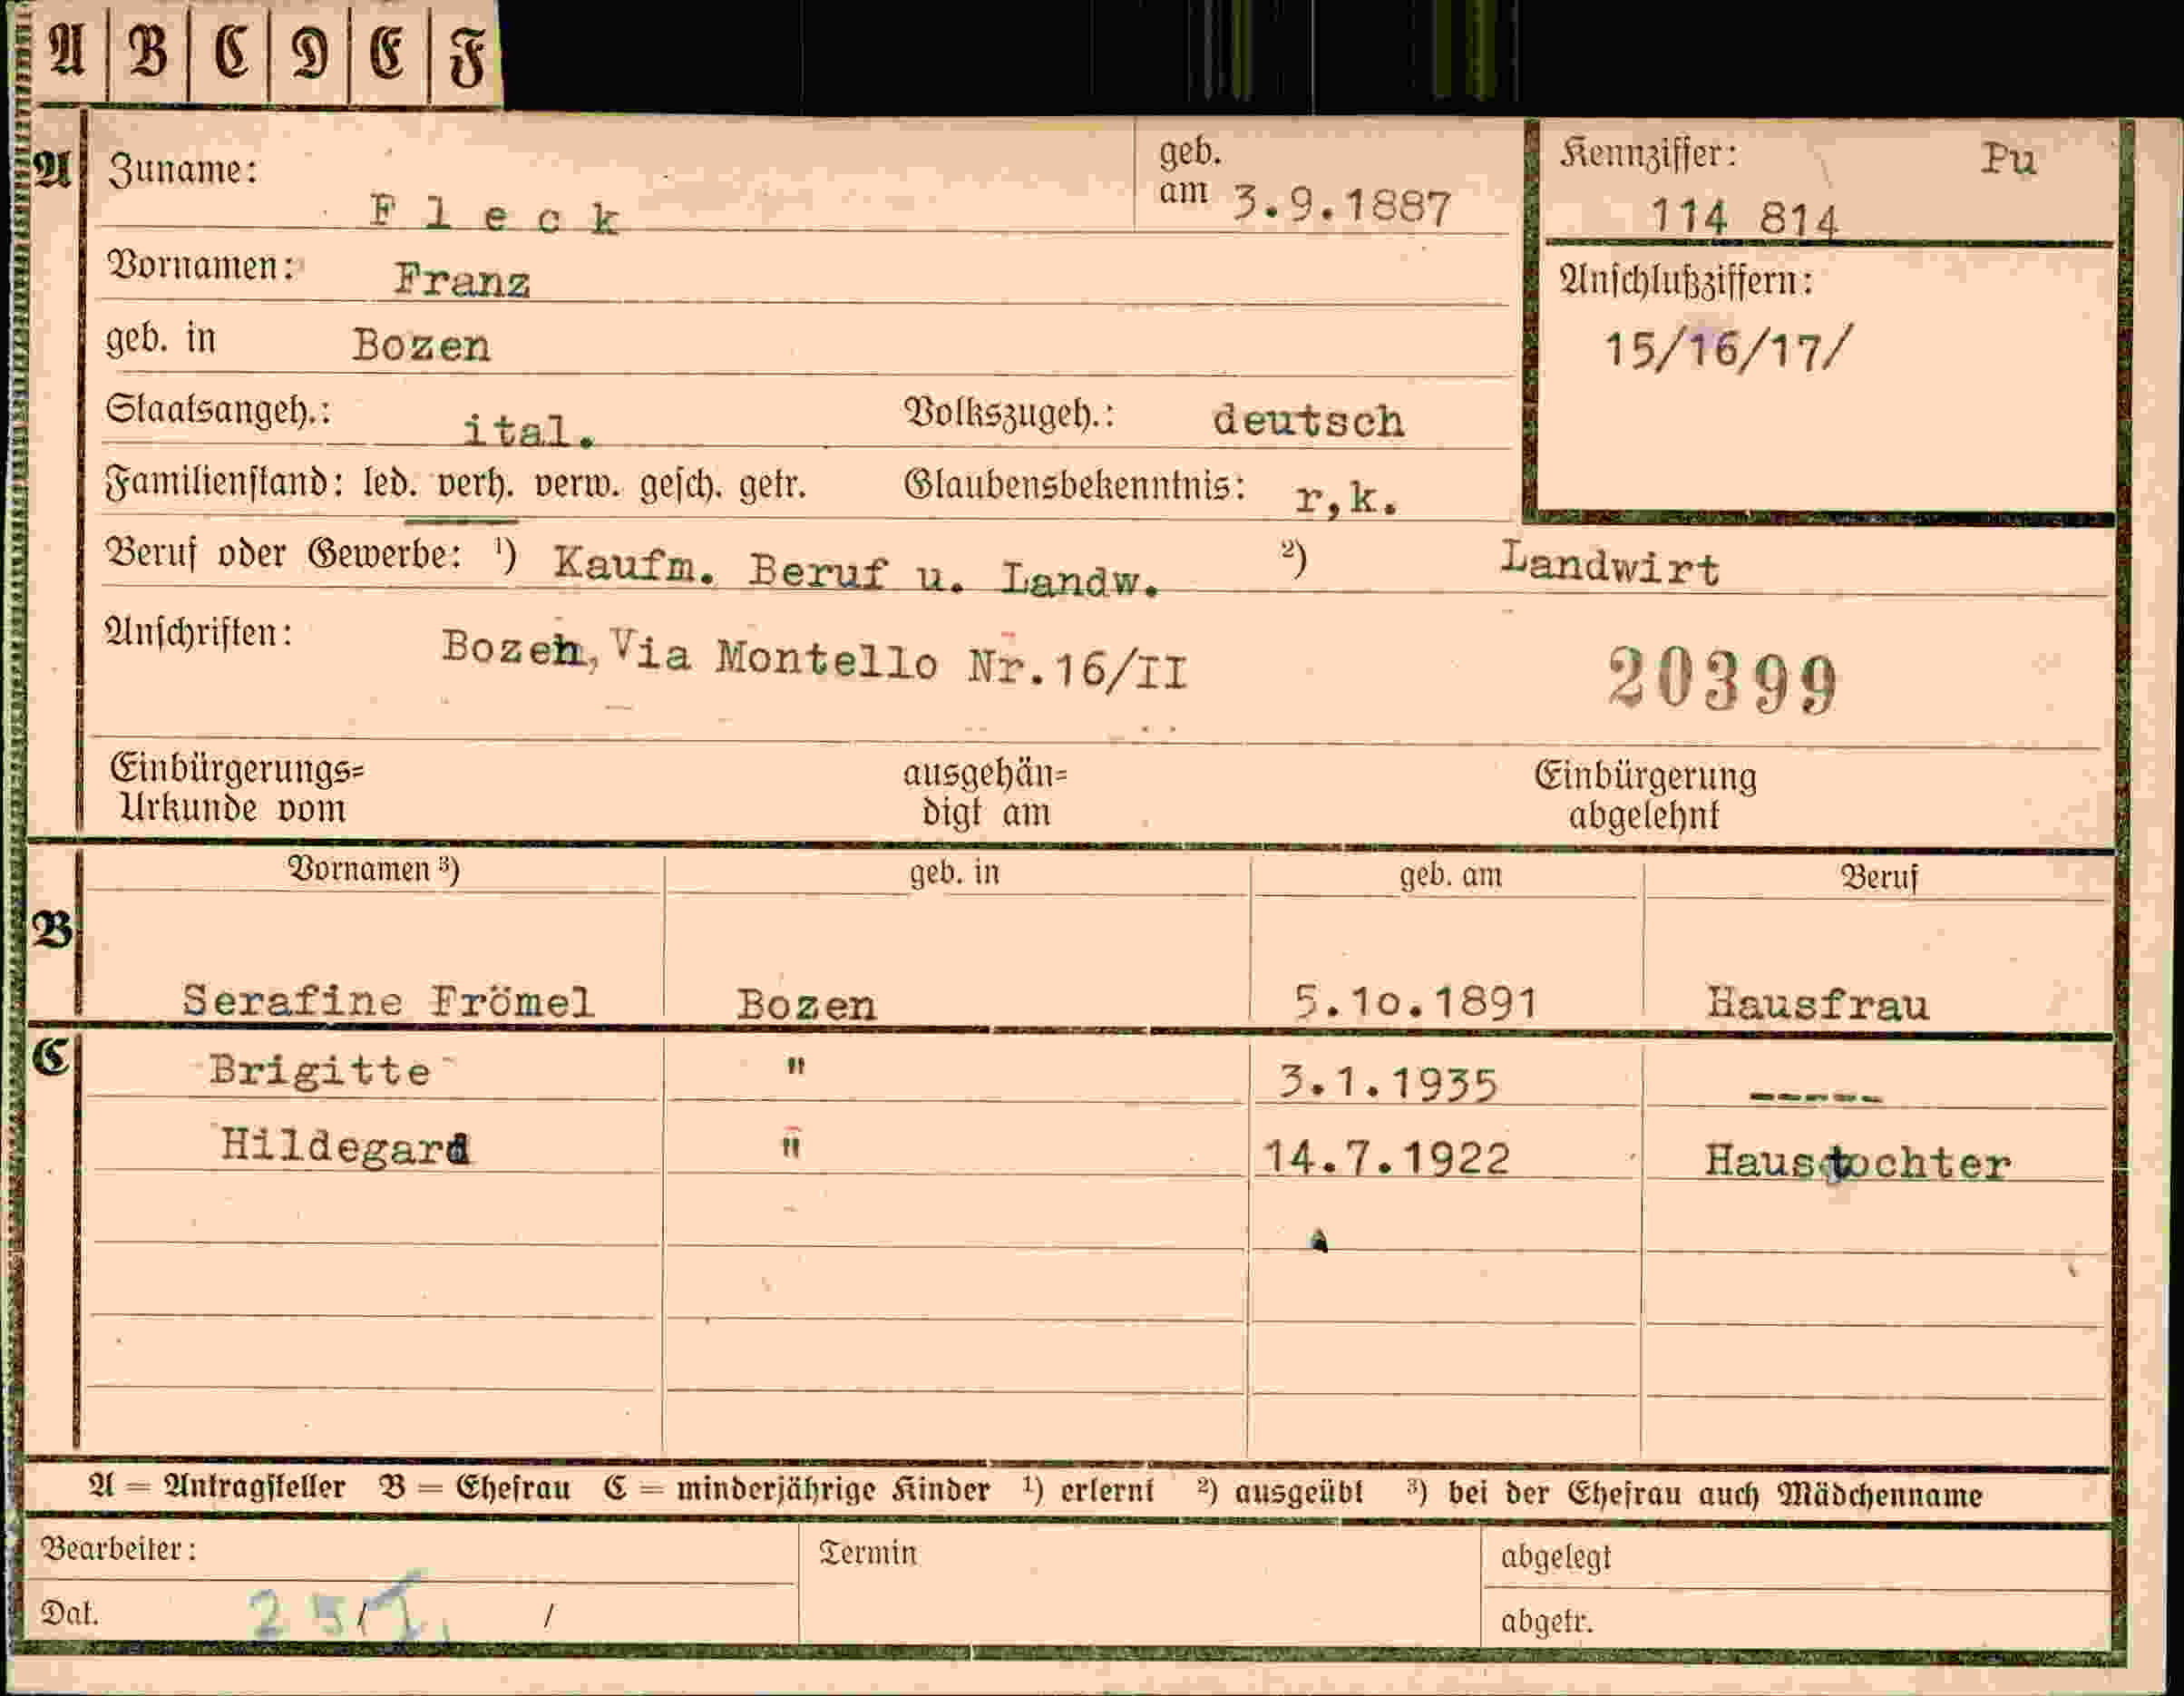 A B C D E F
A Zuname: Fleck geb. am 3.9.1887 Kennziffer: Pu
114 814
Vornamen: Franz
Anschlußziffern:
geb. in Bozen
15/16/17/
Staatsangeh.: ital. Volkszugeh.: deutsch
Familienstand: led. verh. verw. gesch. getr. Glaubensbekenntnis: r,k.
Beruf oder Gewerbe: ¹) Kaufm. Beruf u. Landw. ²) Landwirt
Anschriften: Bozen, Via Montello Nr.16/II 20399
Einbürgerungs= ausgehän= Einbürgerung
Urkunde vom digt am abgelehnt
Vornamen ³) geb. in geb. am Beruf
B
Serafine Frömel Bozen 5.10.1891 Hausfrau
C Brigitte " 3.1.1935 -----
Hildegard " 14.7.1922 Haustochter
A = Antragsteller B = Ehefrau C = minderjährige Kinder ¹) erlernt ²) ausgeübt ³) bei der Ehefrau auch Mädchenname
Bearbeiter: Termin abgelegt
Dat. / abgetr.